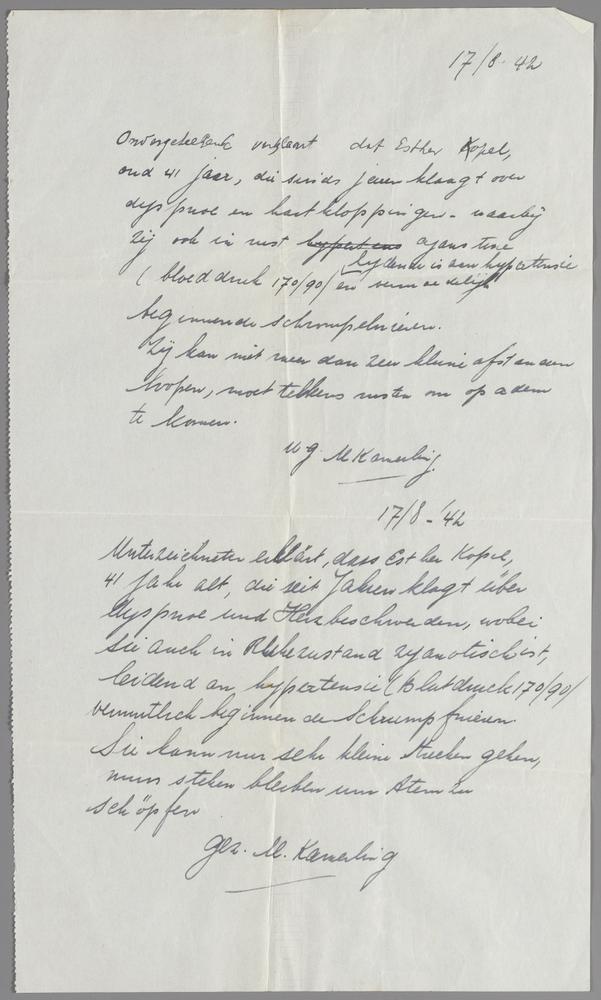 17/8-42
Ondergetekende verklaart dat Esther Kopel,
oud 41 jaar, die sinds jaren klaagt over
dyspnoe en hartkloppingen - waarbij
zij ook in rust hypertens cyanotisch
lijdende is aan hypertensie
(bloeddruk 170/90) en vermoedelijk
beginnende schrompelnieren.
Zij kan niet meer dan zeer kleine afstanden
loopen, moet telkens rusten om op adem
te komen.
w.g. M Kamerling.
17/8-'42
Unterzeichneter erklärt, dass Esther Kopel,
41 Jahr alt, die seit Jahren klagt über
dyspnoe und Herzbeschwerden, wobei
sie auch in Ruhezustand zyanotisch ist,
leidend an hypertensie (Blutdruck 170/90)
vermutlich beginnende Schrumpfnieren.
Sie kann nur sehr kleine Strecken gehen,
muss stehen bleiben um Atem zu
schöpfen
gez. M. Kamerling